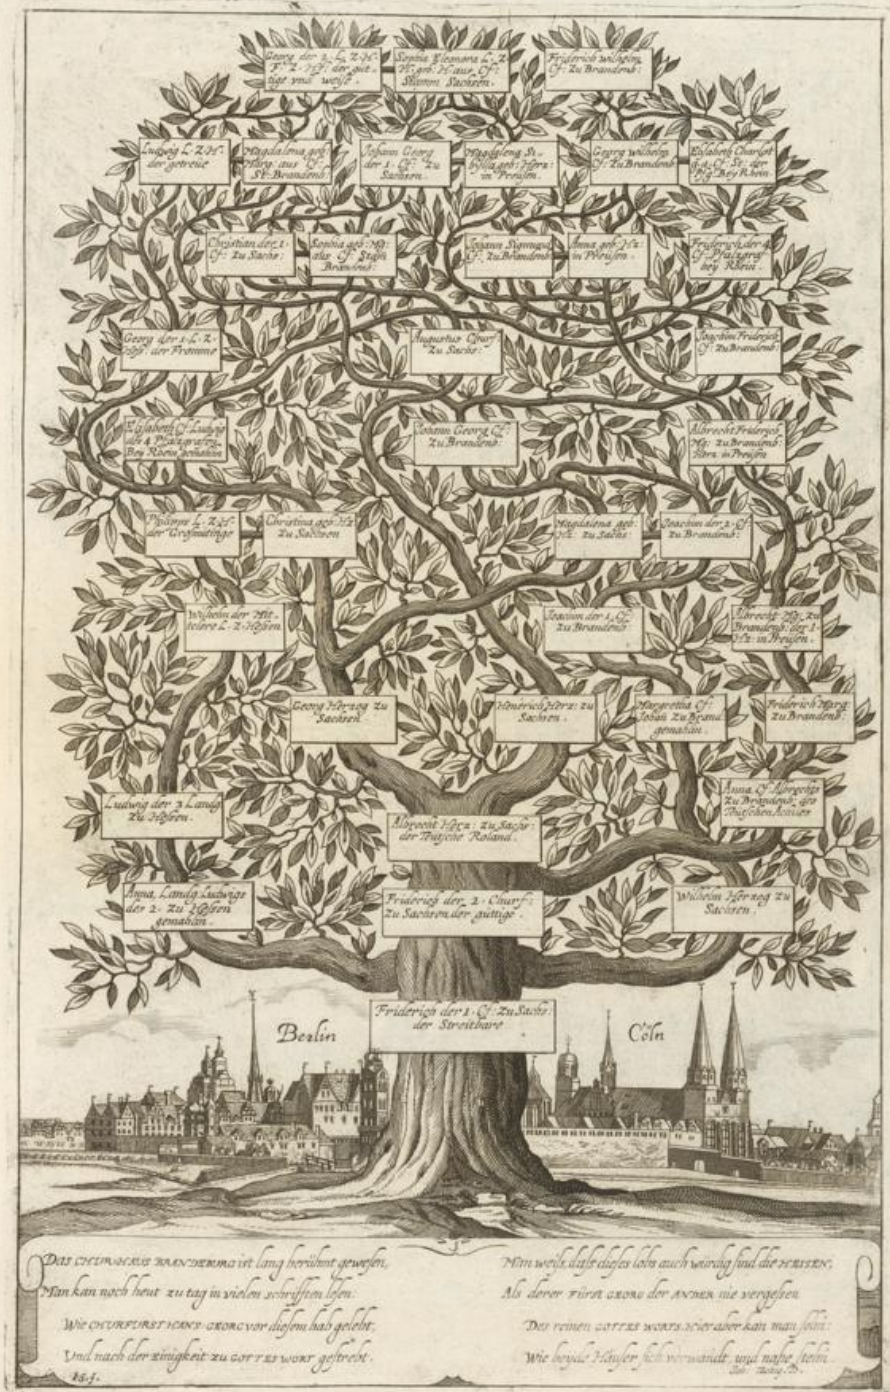 Georg der 2. L. Z. H.
F. Z. Hf: der gut-
tige vnd weise.
Sophia Eleonora L. Z.
H. geb: H. aus Cf:
Stamm Sachsen.
Friderich wilhelm
Cf: Zu Brandenb:
Ludwig L. Z. H.
der getreüe
Magdalena geb:
Marg. aus Cf:
St: Brandenb:
Johann Georg
der 1. Cf: zu
Sachsen.
Magdalena Si-
bylla geb: Herz:
in Preusen.
Georg wilhelm
Cf: Zu Brandenb:
Elisabeth Charlot
Cf: St: der
Pfg: Bey Rhein.
Christian der 1.
Cf: Zu Sachs:
Sophia geb: Mg:
aus Cf: Stam
Brandenb:
Johann Sigmund
Cf: Zu Brandenb:
Anna geb: Hz:
in Preusen.
Friderich der 4.
Cf. Pfalzgraf
bey Rhein.
Georg der 1. L. Z.
Hess: der Fromme
Augustus Churf:
Zu Sachs:
Joachim Friderich
Cf: Zu Brandenb:
Elisabeth Cf: Ludwig
des 4 Pfalzgrafen
Bey Rhein gemahin
Johann Georg Cf:
Zu Brandenb:
Albrecht Friderich
Mg: zu Brandenb:
Herz in Preusen
Philipps L. Z. H.
der Grosmütinge
Christina geb: Hz
Zu Sachsen
Magdalena geb:
Hz: zu Sachs:
Joachim der 2. Cf:
zu Brandenb:
Wilhelm der Mit-
telere L. Z. Hessen
Joachim der 1. Cf:
zu Brandenb:
Albrecht Mg: zu
Brandenb: der 1.
Hz: in Preusen.
Georg Herzog zu
Sachsen
Henrich Herz: zu
Sachsen.
Margretha Cf:
Johan zu Brand
gemahin.
Friderich Marg:
zu Brandenb:
Ludwig der 3 Landg
Zu Hessen.
Albrecht Herz: Zu Sachs:
der Teutsche Roland.
Anna Cf: Albrechts
Zu Brandenb: des
Teutschen
Anna, Landg: Ludwigs
des 2. Zu Hessen
gemahin.
Friderich der 2. Churf:
Zu Sachsen der güttige.
Wilhelm Herzog zu
Sachsen.
Friderich der 1. Cf: Zu Sachs:
der Streitbare
Berlin
Cöln
Das CHURHAUS BRANDEBURG ist lang berühmt gewesen,
Man kan noch heut zu tag in vielen schrifften lesen:
Wie CHURFURST HANS GEORG vor diesem hab gelebt,
Und nach der einigkeit zu GOTTES WORT gestrebt.
Man weiß, daß dieses lobs auch würdig sind die HESSEN,
Als derer FÜRST GEORG der ANDER nie vergessen
Des reinen GOTTES WORTS. Hier aber kan man sehn:
Wie beyde Häuser sich verwandt, und nahe stehn.